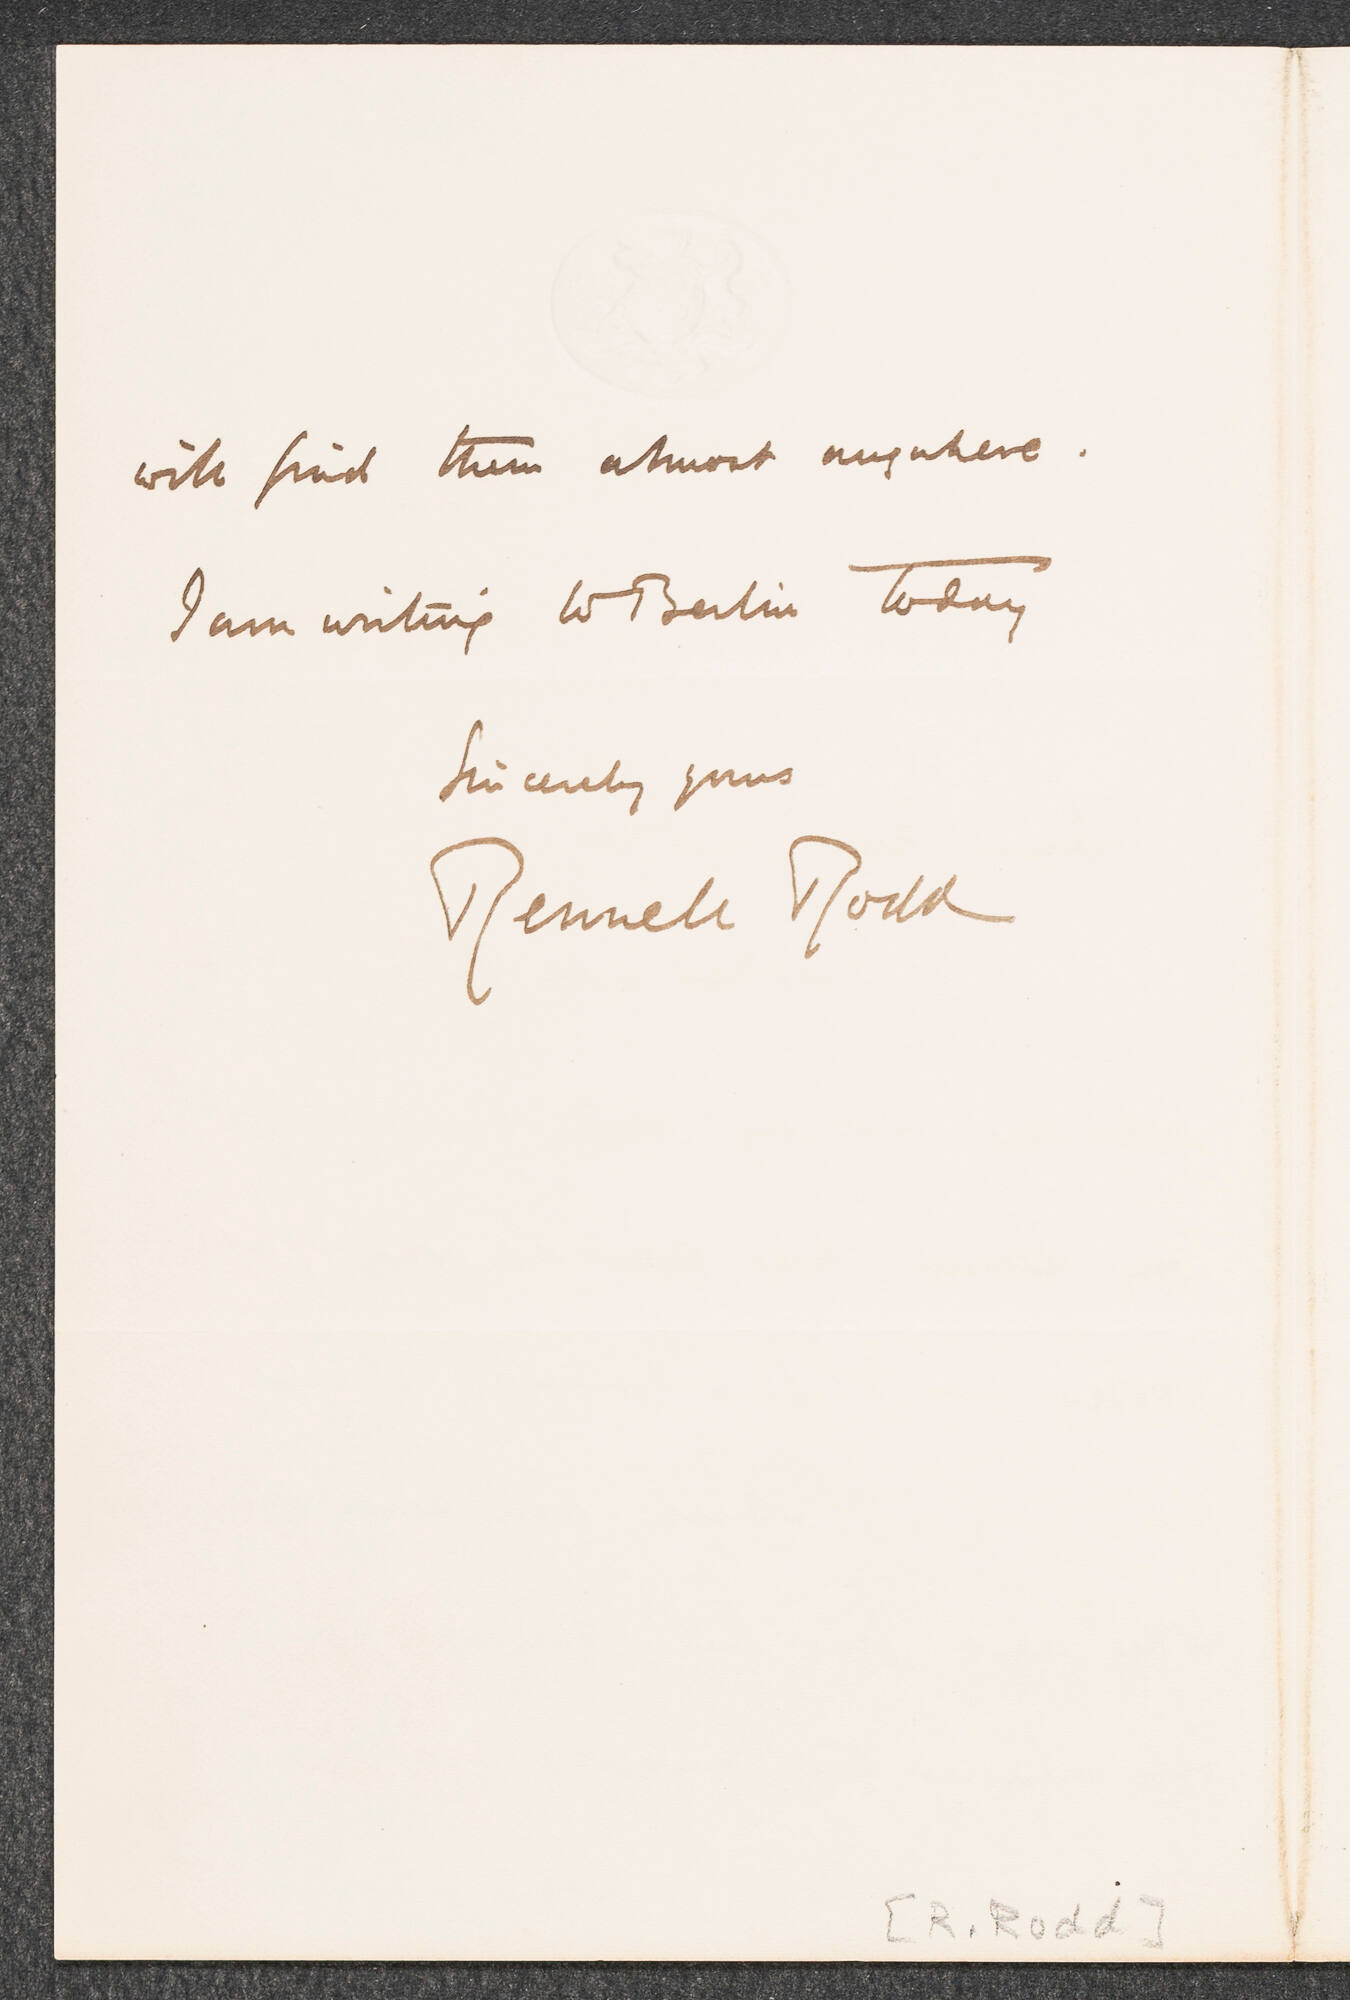 will find them almost anywhere.
I am writing to Berlin today
Sincerely yours
Rennell Rodd
[R. Rodd]